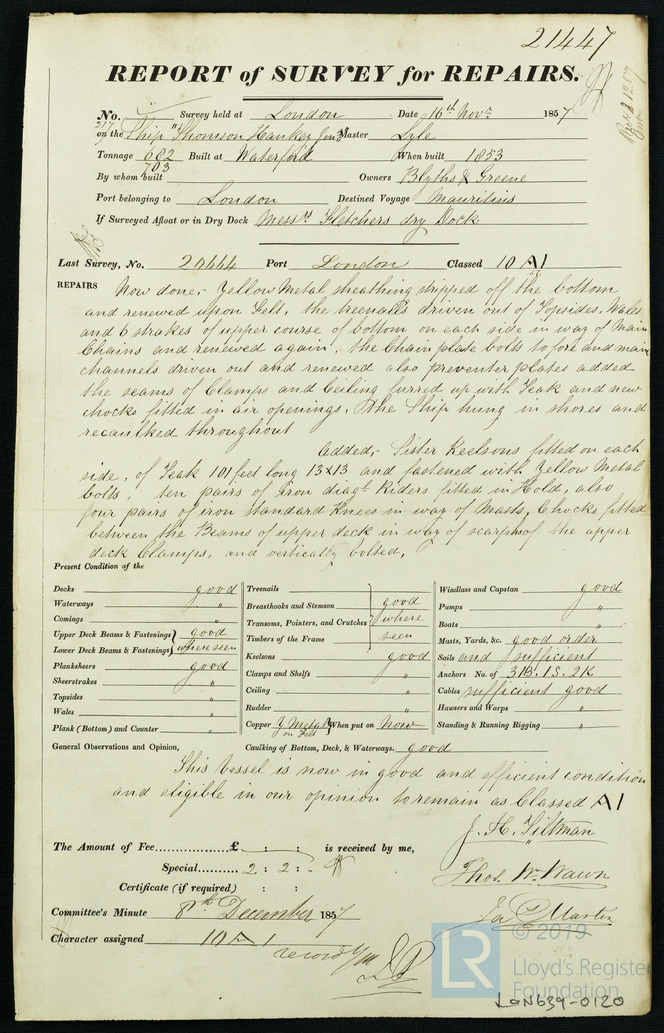 21447
REPORT of SURVEY for REPAIRS.
No. Survey held at London Date 16th Novr 1857
on the Ship "Thomson Hankey Junr Master Lyle
Tonnage 682 Built at Waterford When built 1853
703
By whom built Owners Blyths & Greene
Port belonging to London Destined Voyage Mauritius
If Surveyed Afloat or in Dry Dock Messrs Fletchers dry Dock
Last Survey, No. 20664 Port London Classed 10 A1
REPAIRS Now done,- Yellow Metal sheathing stripped off the bottom
and renewed upon Felt, the treenails driven out of Topsides, Wales
and 6 strakes of upper course of bottom on each side in way of Main
Chains and renewed again. the Chain plate bolts to fore and main
channels driven out and renewed also preventer plates added
the seams of Clamps and Ceiling furred up with Teak and new
chocks fitted in air openings. The Ship hung in shores and
recaulked throughout
Added,- Sister Keelsons fitted on each
side, of Teak 101 feet long 13x13 and fastened with Yellow Metal
bolts, ten pairs of iron diagl Riders fitted in Hold, also
four pairs of iron standard Knees in way of Masts, Chocks fitted
between the Beams of upper deck in way of scarphs of the upper
deck Clamps, and vertically bolted,
Present Condition of the
Decks good
Waterways "
Comings "
Upper Deck Beams & Fastenings } good
Lower Deck Beams & Fastenings } where seen
Planksheers good
Sheerstrakes "
Topsides "
Wales "
Plank (Bottom) and Counter "
Treenails
Breasthooks and Stemson good
Transoms, Pointers, and Crutches where
Timbers of the Frame seen
Keelsons good
Clamps and Shelfs "
Ceiling "
Rudder "
Copper Y Metal on Felt } When put on Now
Windlass and Capstan good
Pumps "
Boats "
Masts, Yards, &c. good order
Sails and sufficient
Anchors No. of 3B. 1S. 2K
Cables sufficient good
Hawsers and Warps "
Standing & Running Rigging "
General Observations and Opinion, Caulking of Bottom, Deck, & Waterways. good
This Vessel is now in good and efficient condition
and eligible in our opinion to remain as Classed A1
J. H. Tiltman
The Amount of Fee £ : : is received by me,
Special 2 : 2 : -
Thos. Wm. Wawn
Certificate (if required) : :
Committee's Minute 8th December 1857
Jas Martin
Character assigned 10 A 1
© 2019
LR
Lloyd's Register
Foundation
LON639-0120